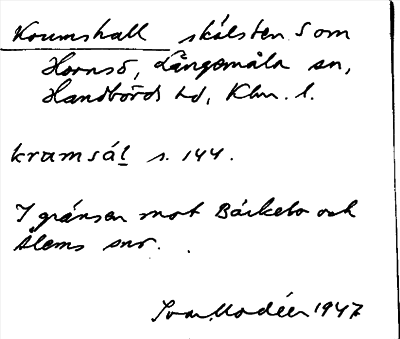 Krumshall skålsten S om
Hornsö, Långemåla sn,
Handbörds hd, Klm. l.
krumsál s. 144.
I gränsen mot Bäckebo och
Ålems snr.
Ivar Modéer 1947